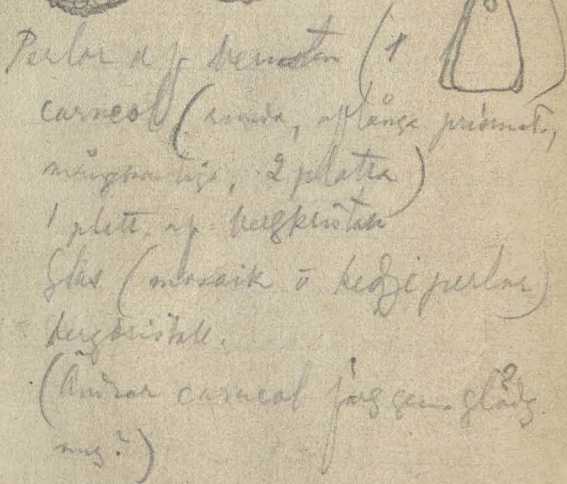 Perlor af bernsten (1
carneol (runda, aflånga prismat.,
mångkantiga, 2 platta)
1 platt. af bergkristall
Glas (mosaik o kedjeperlor)
bergkristall.
(Ändrar carneol färg genom glödg
ning?)